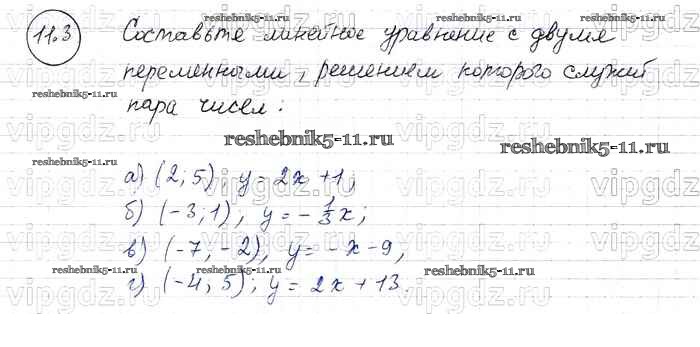 11.3 Составьте линейное уравнение с двумя
переменными, решением которого служит
пара чисел:
а) (2; 5), y = 2x + 1;
б) (-3; 1), y = -1/3 x;
в) (-7, -2), y = -x - 9,
г) (-4; 5); y = 2x + 13.
reshebnik5-11.ru
reshebnik5-11.ru
reshebnik5-11.ru
reshebnik5-11.ru
reshebnik5-11.ru
reshebnik5-11.ru
reshebnik5-11.ru
reshebnik5-11.ru
vipgdz.ru vipgdz.ru vipgdz.ru vipgdz.ru
vipgdz.ru vipgdz.ru vipgdz.ru vipgdz.ru
vipgdz.ru vipgdz.ru vipgdz.ru vipgdz.ru
vipgdz.ru vipgdz.ru vipgdz.ru vipgdz.ru